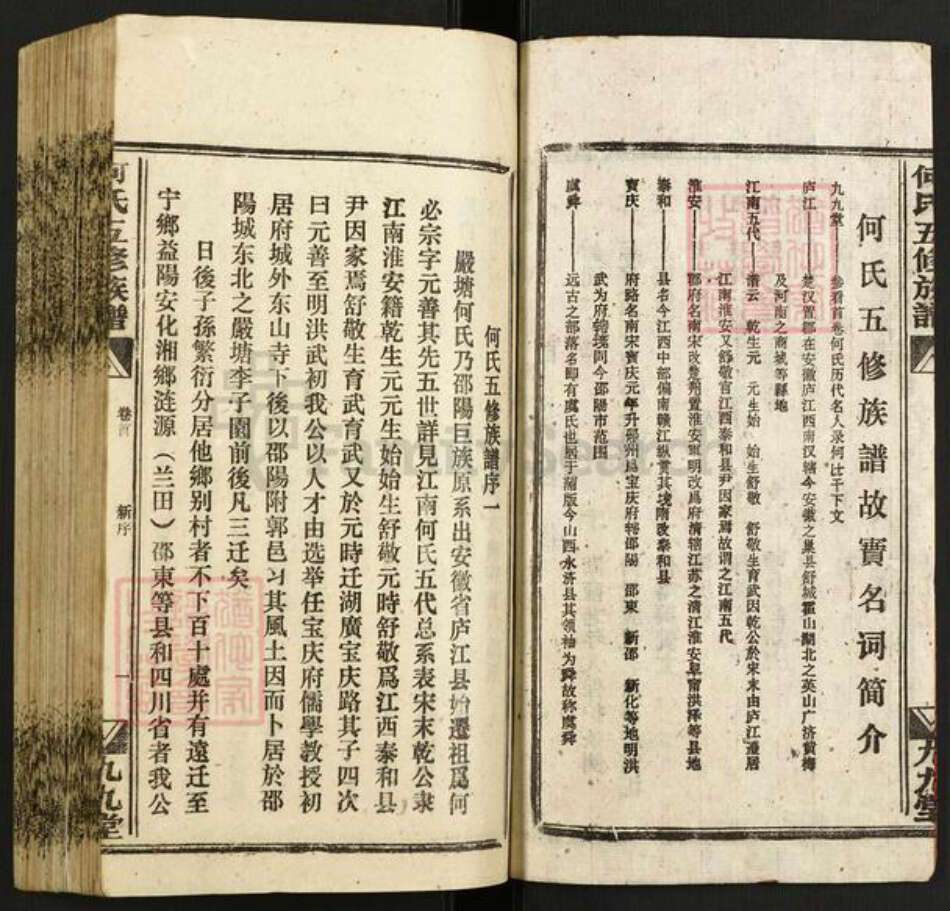 何氏五修族譜
九九堂
何氏五修族譜故實名词简介
九九堂——参看首卷何氏历代名人录何比干下文
庐江——楚汉置郡在安徽庐江西南汉辖今安徽之巢县舒城霍山湖北之英山广济黄梅
及河南之商城等縣地
江南五代——谱云 乾生元 元生始 始生舒敬 舒敬生育武因乾公於宋末由庐江遷居
江南淮安又舒敬官江西泰和县尹因家焉故谓之江南五代
淮安——郡府名南宋改楚州置淮安軍明改爲府清辖江苏之清江淮安阜甯洪泽等县地
泰和——县名今江西中部偏南赣江纵贯其境隋改泰和县
寳庆——府路名南宋寳庆元年升邵州爲宝庆府轄邵陽 邵東 新邵 新化等地明洪
武为府轄境同今邵陽市范围
虞舜——远古之部落名即有虞氏也居于蒲版今山西永济县其领袖为舜故称虞舜
何氏五修族譜序一
嚴塘何氏乃邵陽巨族原系出安徽省庐江县始遷祖爲何
必宗字元善其先五世詳見江南何氏五代总系表宋末乾公隶
江南淮安籍乾生元元生始始生舒敬元時舒敬爲江西泰和县
尹因家焉舒敬生育武育武又於元時迁湖廣宝庆路其子四次
曰元善至明洪武初我公以人才由选举任宝庆府儒學教授初
居府城外东山寺下後以邵陽附郭邑习其風土因而卜居於邵
陽城东北之嚴塘李子園前後凡三迁矣
日後子孫繁衍分居他鄉别村者不下百十處并有遠迁至
宁鄉益陽安化湘鄉涟源（兰田）邵東等县和四川省者我公
何氏五修族譜
卷首
新序
一
九九堂